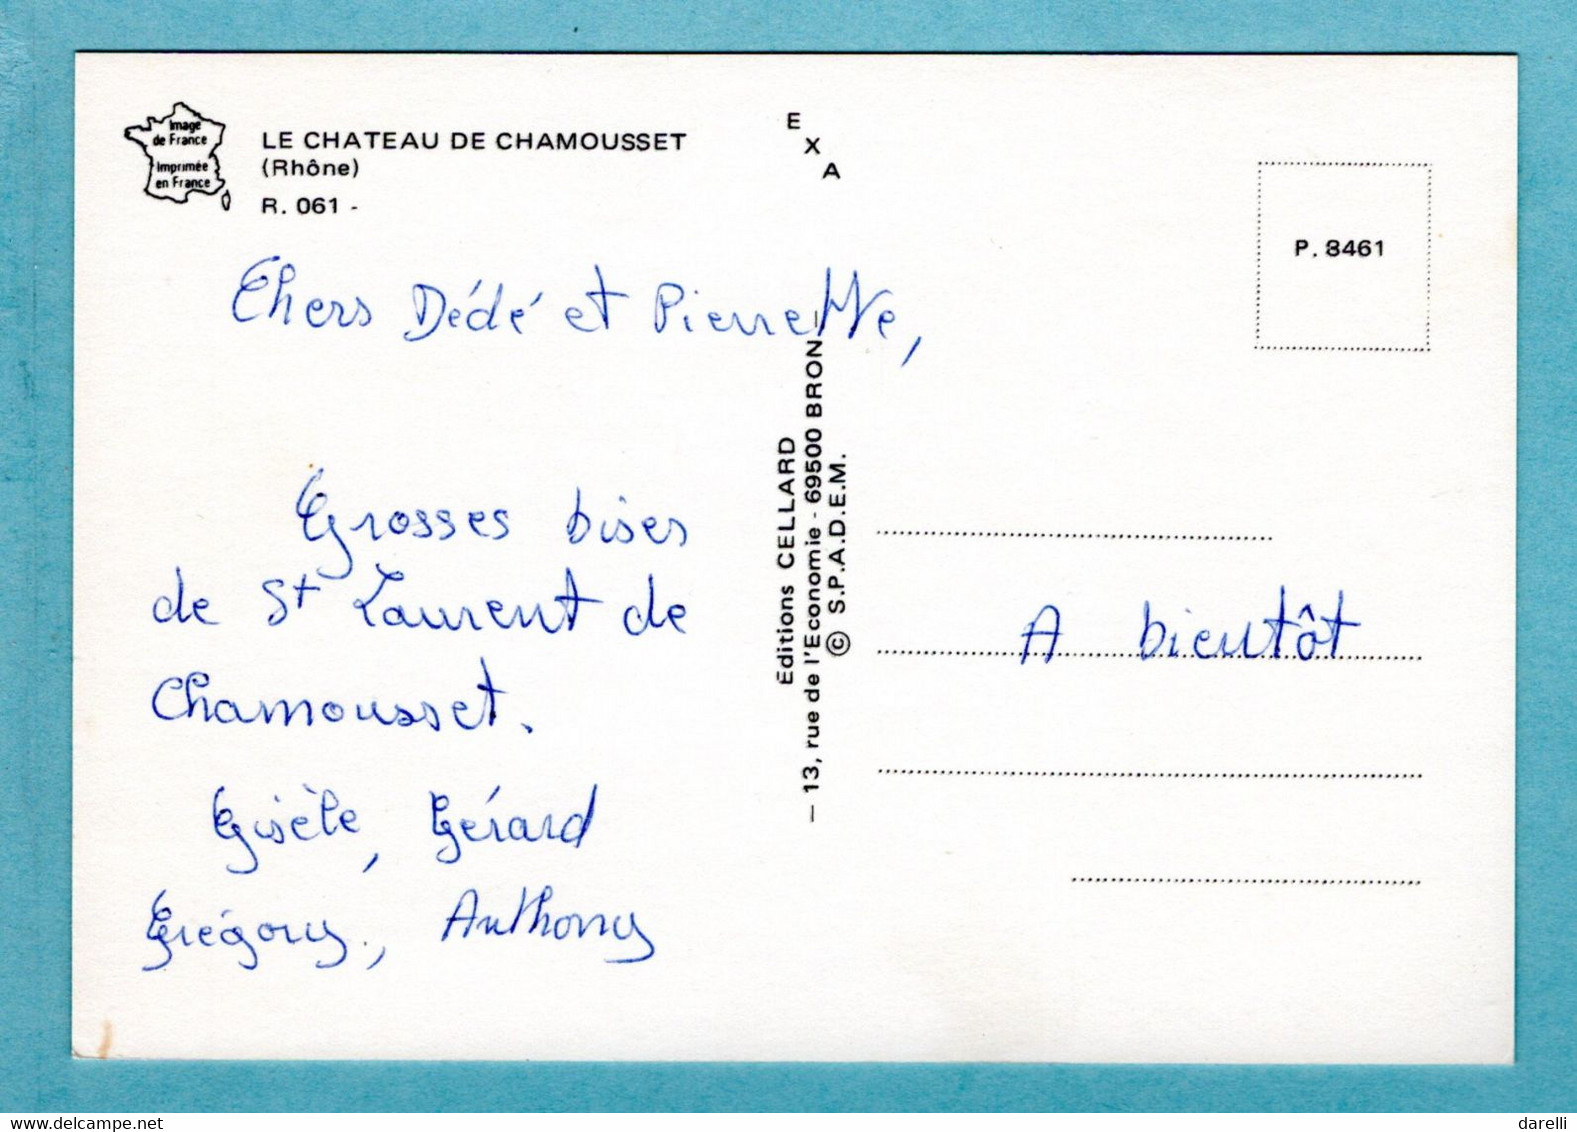 Image
de France
Imprimée
en France
LE CHATEAU DE CHAMOUSSET
(Rhône)
R. 061 -
E
X
A
P. 8461
Chers Dédé et Pierrette,
Grosses bises
de St Laurent de
Chamousset.
Gisèle, Gérard
Grégory, Anthony
Editions CELLARD
— 13, rue de l'Economie - 69500 BRON —
© S.P.A.D.E.M.
A bientôt
www.delcampe.net
darelli